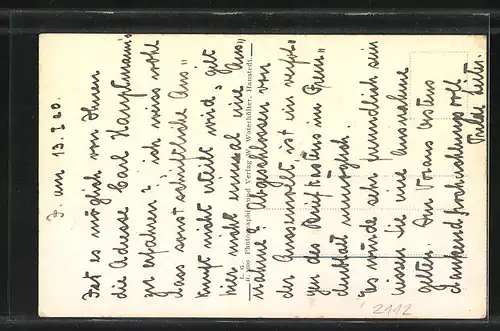 F. am 13. I 20.
Ist es möglich von Ihnen
die Adresse Carl Hauptmann's
zu erfahren?, ich weiss wohl
dass sonst schriftliche Aus=
kunft nicht erteilt wird, gilt
hier nicht einmal eine Aus=
nahme? Abgeschlossen von
der Aussenwelt, ist ein
gen des Briefkastens im
denkbar unmöglich.
Es würde sehr freundlich sein
wissen Sie eine Ausnahme
gelten. Im Voraus bestens
dankend hochachtungsvoll
L. G.
Photographie und Verlag W. Waterhölter, Hanstedt.
2112